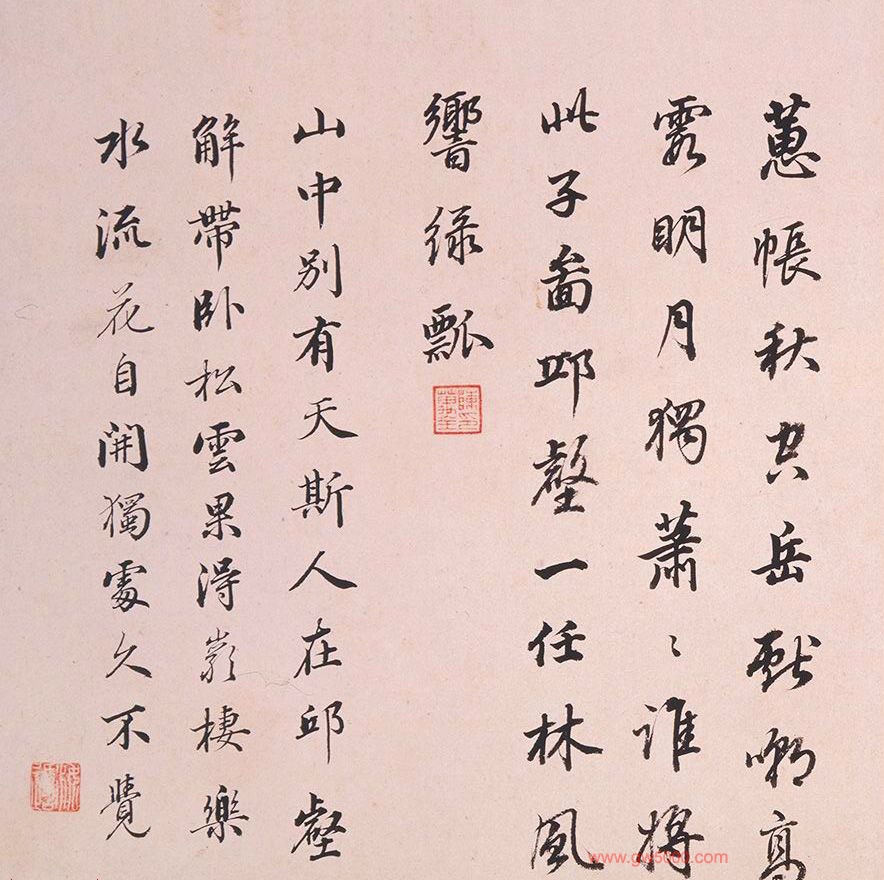 蕙帳秋空岳獻嘲高
霞明月獨蕭〻誰將
此子圖邱壑一任林風
響緑瓢
山中別有天斯人在邱壑
解帶卧松雲果得巖棲樂
水流花自開獨處久不覺
www.gw5000.com